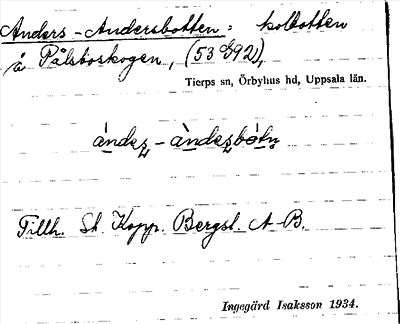 Anders-Andersbotten: kolbotten
å Pålsboskogen, (53 G92),
Tierps sn, Örbyhus hd, Uppsala län.
ándeʐ-àndeʐbòtn̥
Tillh. St. Kopp. Bergsl. A-B.
Ingegärd Isaksson 1934.